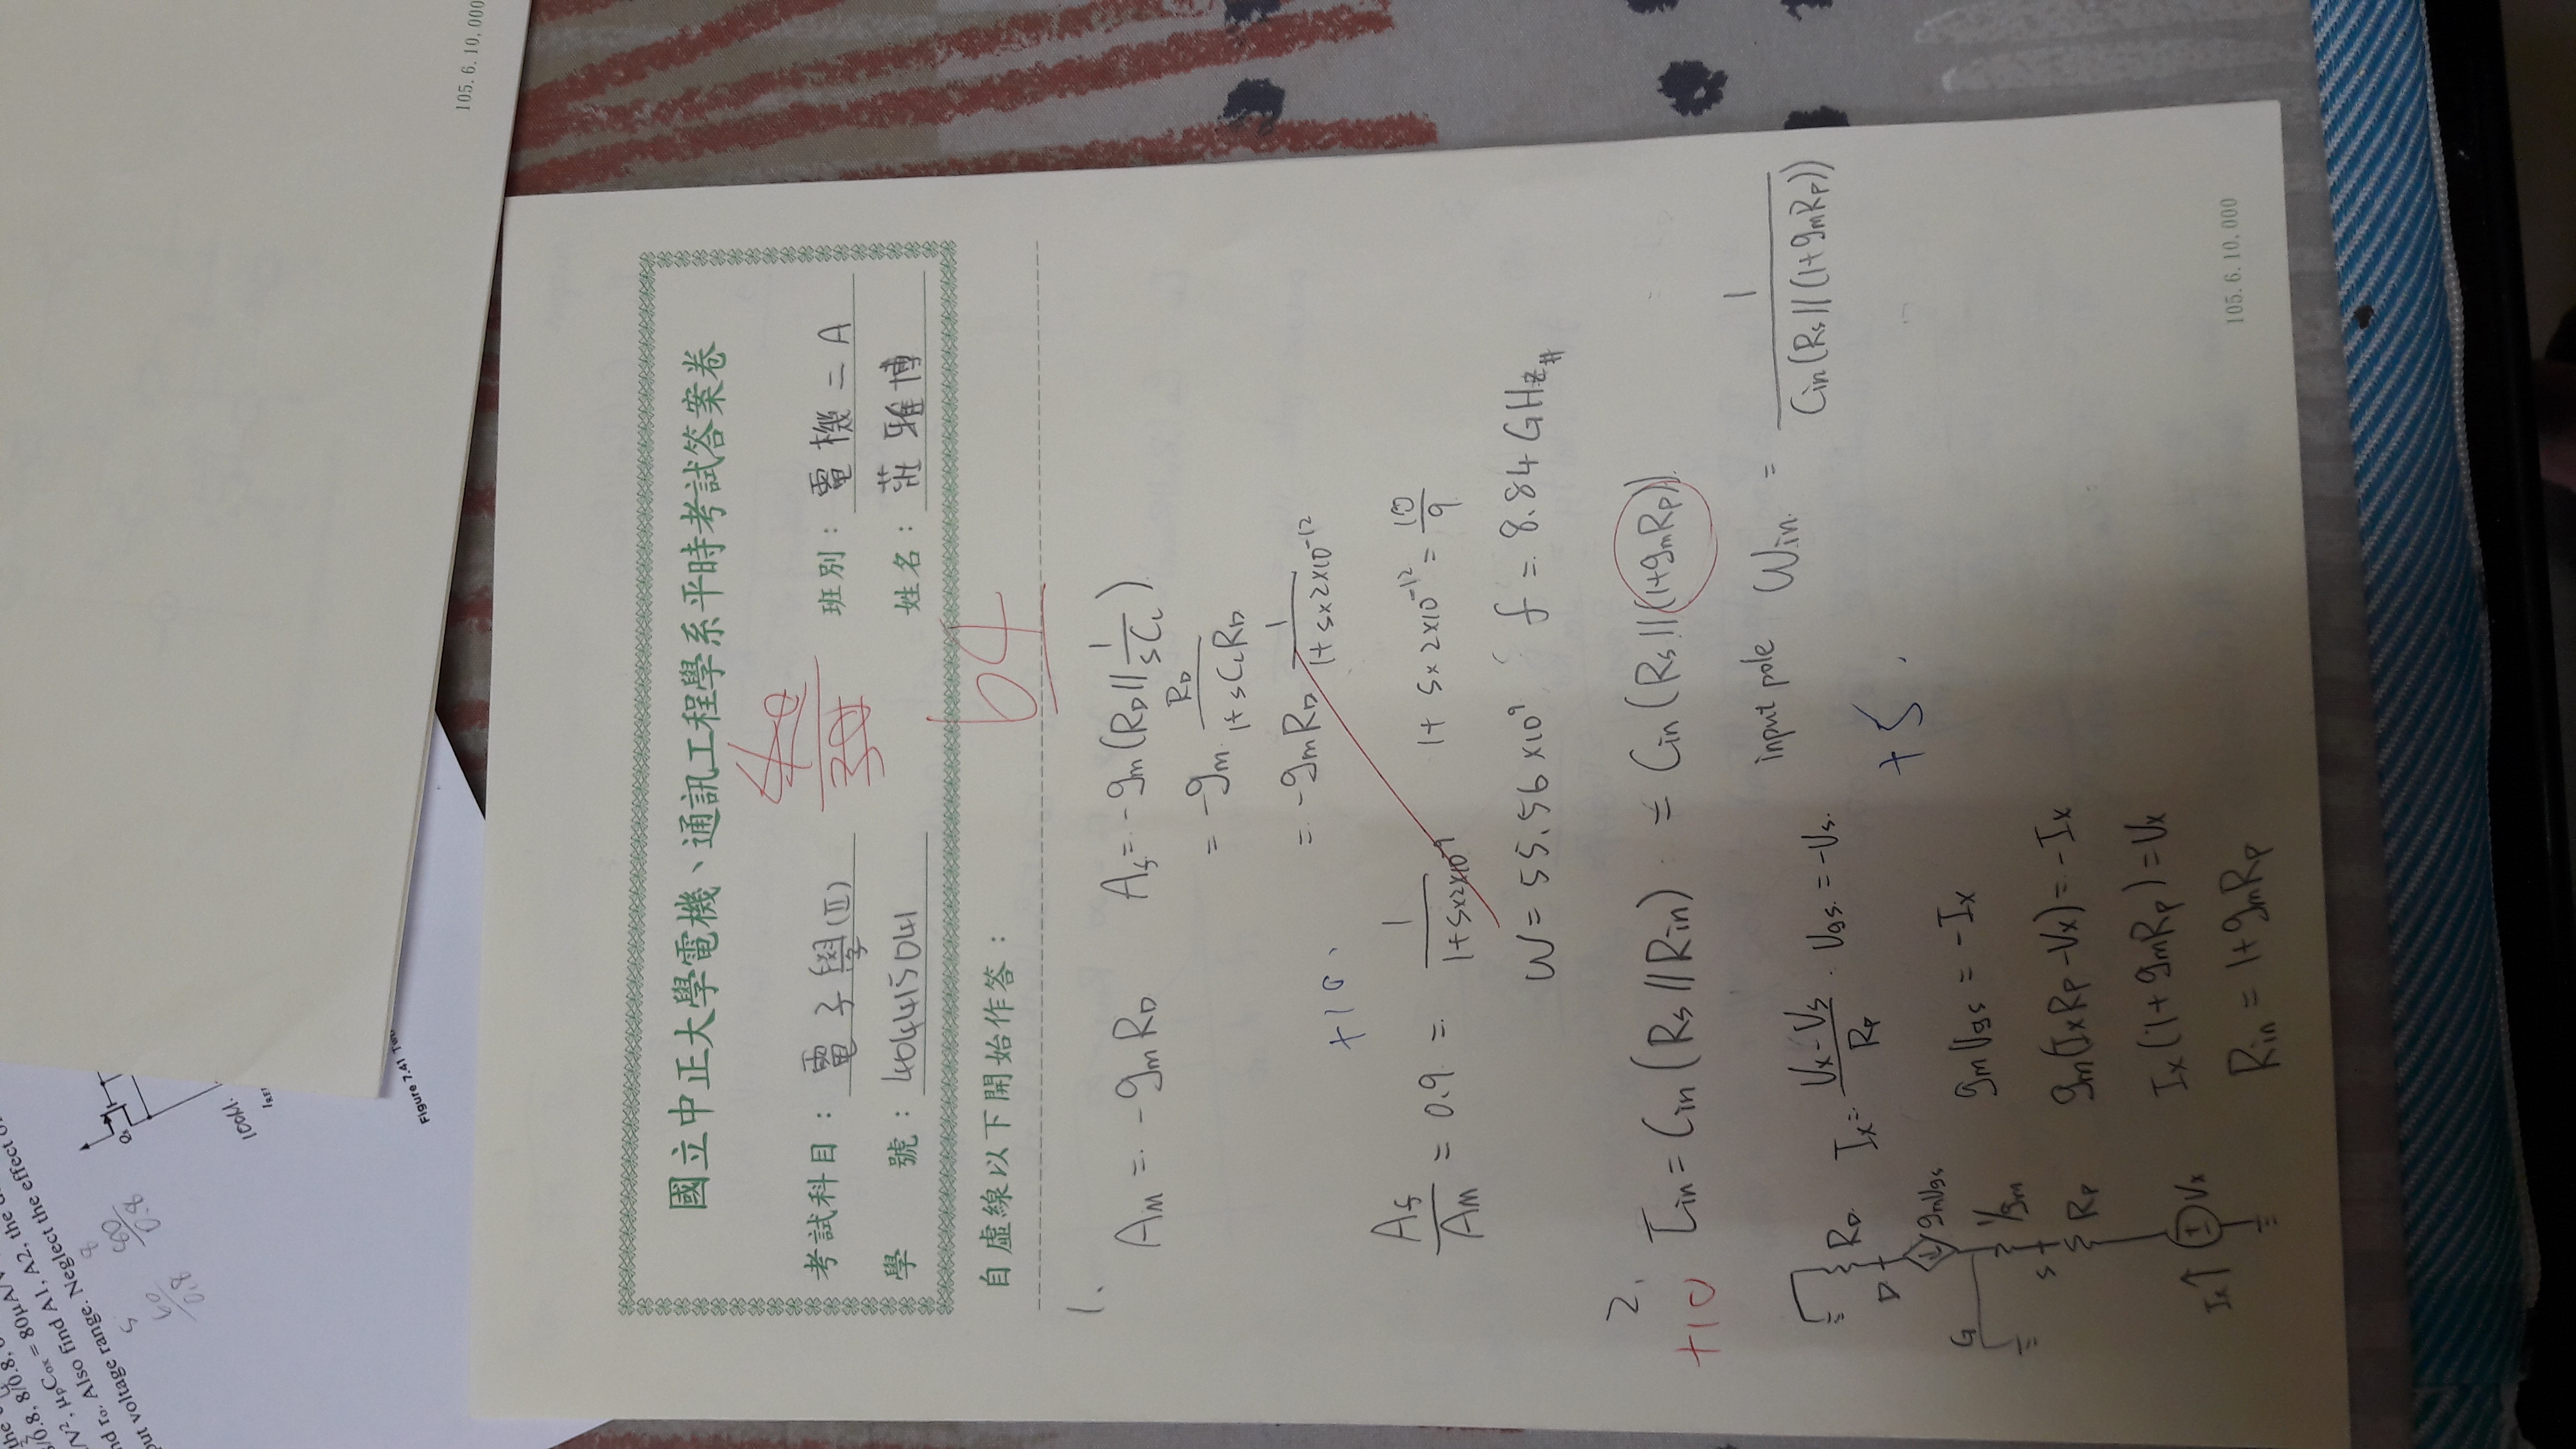 8/0.8, 8/0.8,
/V², μpCox = 80μA/V
nd ro. Also find A1, A2, the
put voltage range. Neglect the effect o
5
60
0.8
8
80
0.8
Q8
100M.
IREF
Figure 7.41 Two
105.6.10,000
國立中正大學電機、通訊工程學系平時考試答案卷
考試科目: 電子學(II)
40
30
班別: 電機二A
學 號: 404415041
姓名: 莊雅博
64
自虛線以下開始作答:
1.
AM = -gmRD As = -gm(RD // 1/sCL)
= -gm RD/1+sCLRD
= -gmRD 1/1+s×2×10⁻¹²
+10.
As/AM = 0.9 = 1/1+s×2×10⁻⁹ 1+s×2×10⁻¹² = 10/9
W = 55.56×10⁹ f = 8.84 GHz#
2.
+10 τin = Cin(Rs//Rin) = Cin(Rs//(1+gmRp)).
input pole Win. = 1/Cin(Rs//(1+gmRp))
RD
D
gmVgs
G
1/gm
S
Rp
Ix↑ Vx
Ix = Vx-Vs/Rp . Vgs. = -Vs.
+5.
gmVgs = -Ix
gm(IxRp-Vx) = -Ix
Ix(1+gmRp) = Vx
Rin = 1+gmRp
105.6.10,000